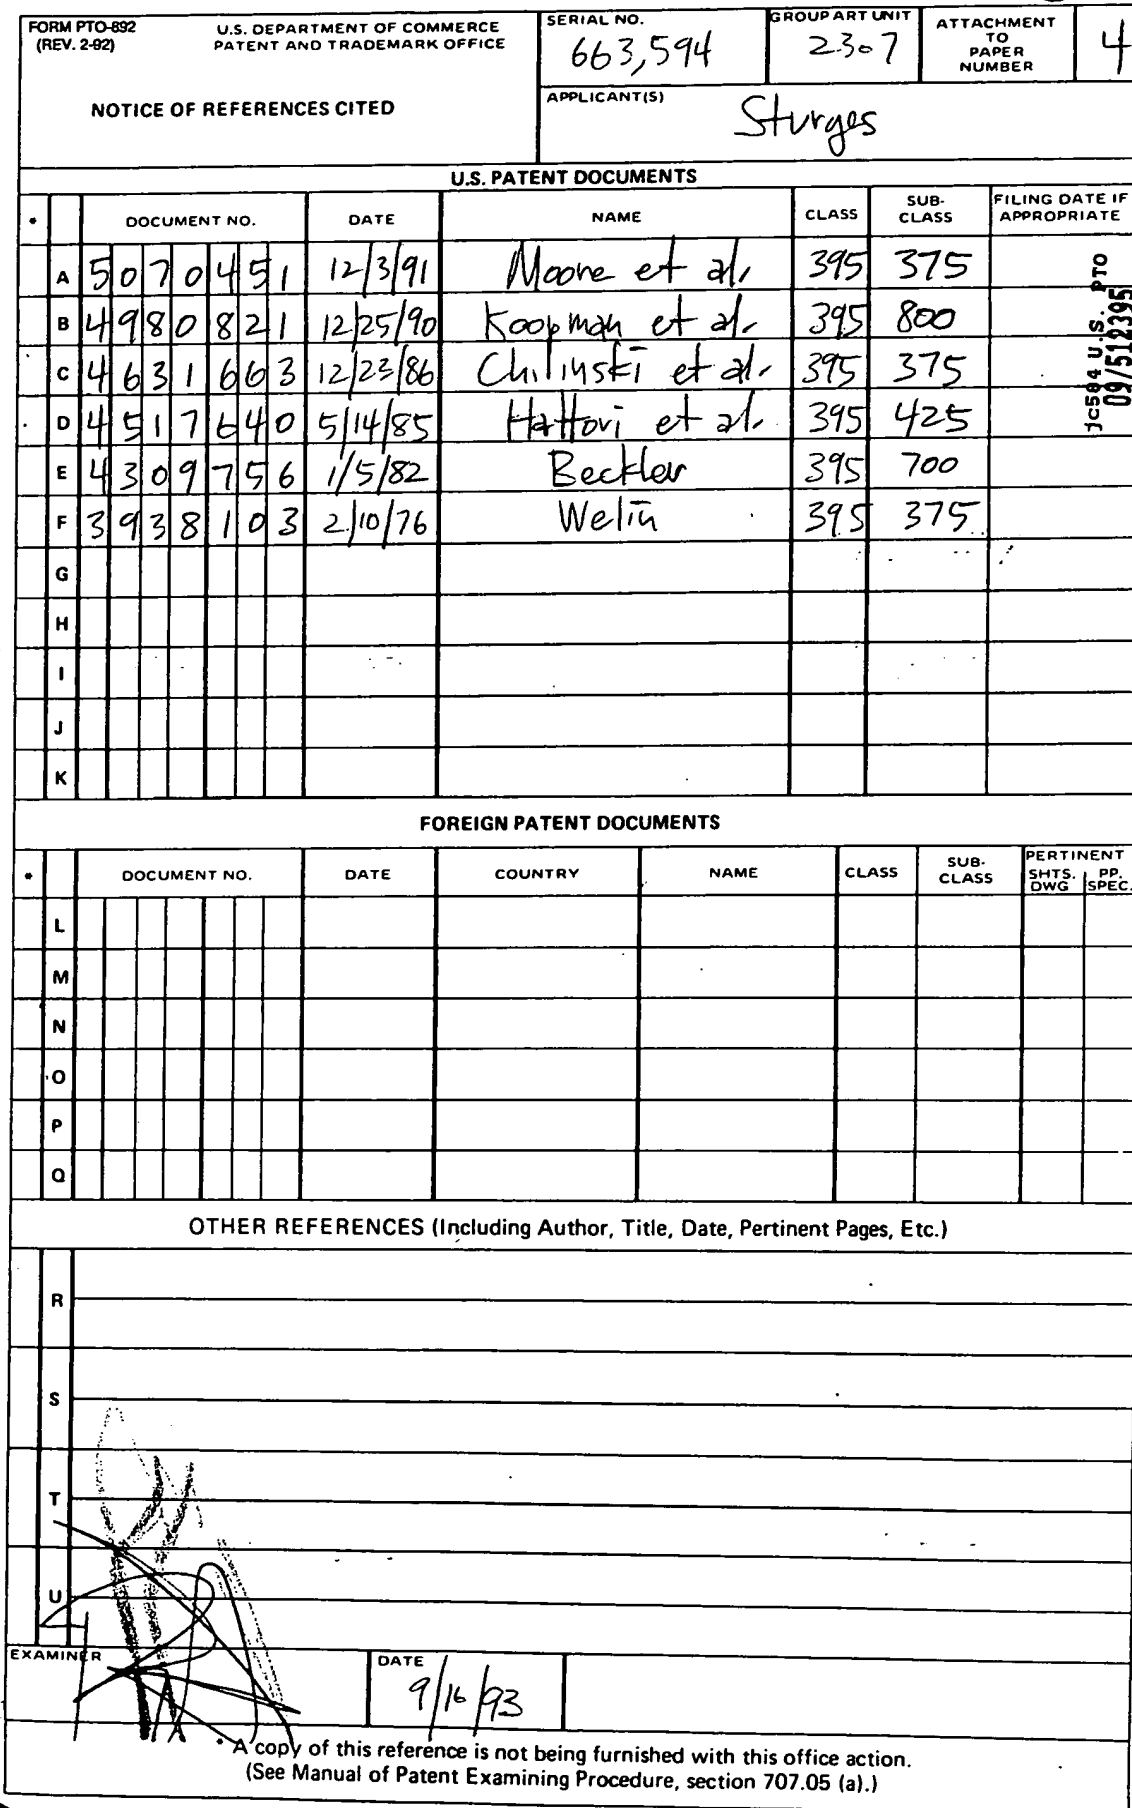 FORM PTO-892
(REV. 2-92)
U.S. DEPARTMENT OF COMMERCE
PATENT AND TRADEMARK OFFICE
NOTICE OF REFERENCES CITED
SERIAL NO.
663,594
GROUP ART UNIT
2307
ATTACHMENT
TO
PAPER
NUMBER
4
APPLICANT(S)
Sturges
U.S. PATENT DOCUMENTS
* DOCUMENT NO. DATE NAME CLASS SUB-CLASS FILING DATE IF APPROPRIATE
A 5070451 12/3/91 Moore et al. 395 375
B 4980821 12/25/90 Koopman et al. 395 800
C 4631663 12/23/86 Chilinski et al. 395 375
D 4517640 5/14/85 Hattori et al. 395 425
E 4309756 1/5/82 Beckler 395 700
F 3938103 2/10/76 Welin 395 375
G
H
I
J
K
jc584 U.S. PTO
09/512395
FOREIGN PATENT DOCUMENTS
* DOCUMENT NO. DATE COUNTRY NAME CLASS SUB-CLASS PERTINENT SHTS. DWG PP. SPEC.
L
M
N
O
P
Q
OTHER REFERENCES (Including Author, Title, Date, Pertinent Pages, Etc.)
R
S
T
U
EXAMINER
DATE
9/16/93
* A copy of this reference is not being furnished with this office action.
(See Manual of Patent Examining Procedure, section 707.05 (a).)